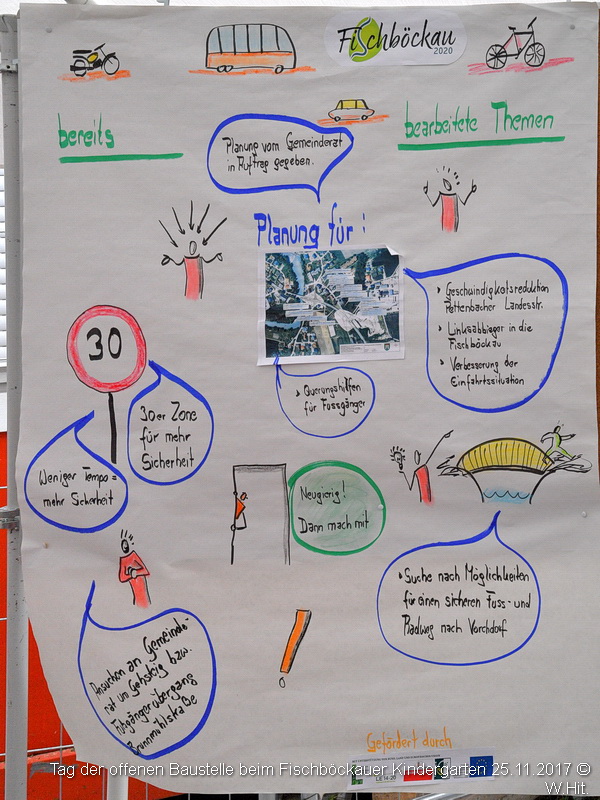 Fischböckau
2020
bereits
bearbeitete Themen
Planung vom Gemeinderat
in Auftrag gegeben.
Planung für:
› Geschwindigkeitsreduktion
Pettenbacher Landesstr.
› Linksabbieger in die
Fischböckau
› Verbesserung der
Einfahrtssituation
30
30er Zone
für mehr
Sicherheit
› Querungshilfen
für Fussgänger
Weniger Tempo =
mehr Sicherheit
Neugierig!
Dann mach mit
• Suche nach Möglichkeiten
für einen sicheren Fuss- und
Radweg nach Vorchdorf
Ansuchen an Gemeinde-
rat um Gehsteig bzw.
Fußgängerübergang
Brunnmühlstraße
Gefördert durch
Tag der offenen Baustelle beim Fischböckauer Kindergarten 25.11.2017 ©
W.Hit